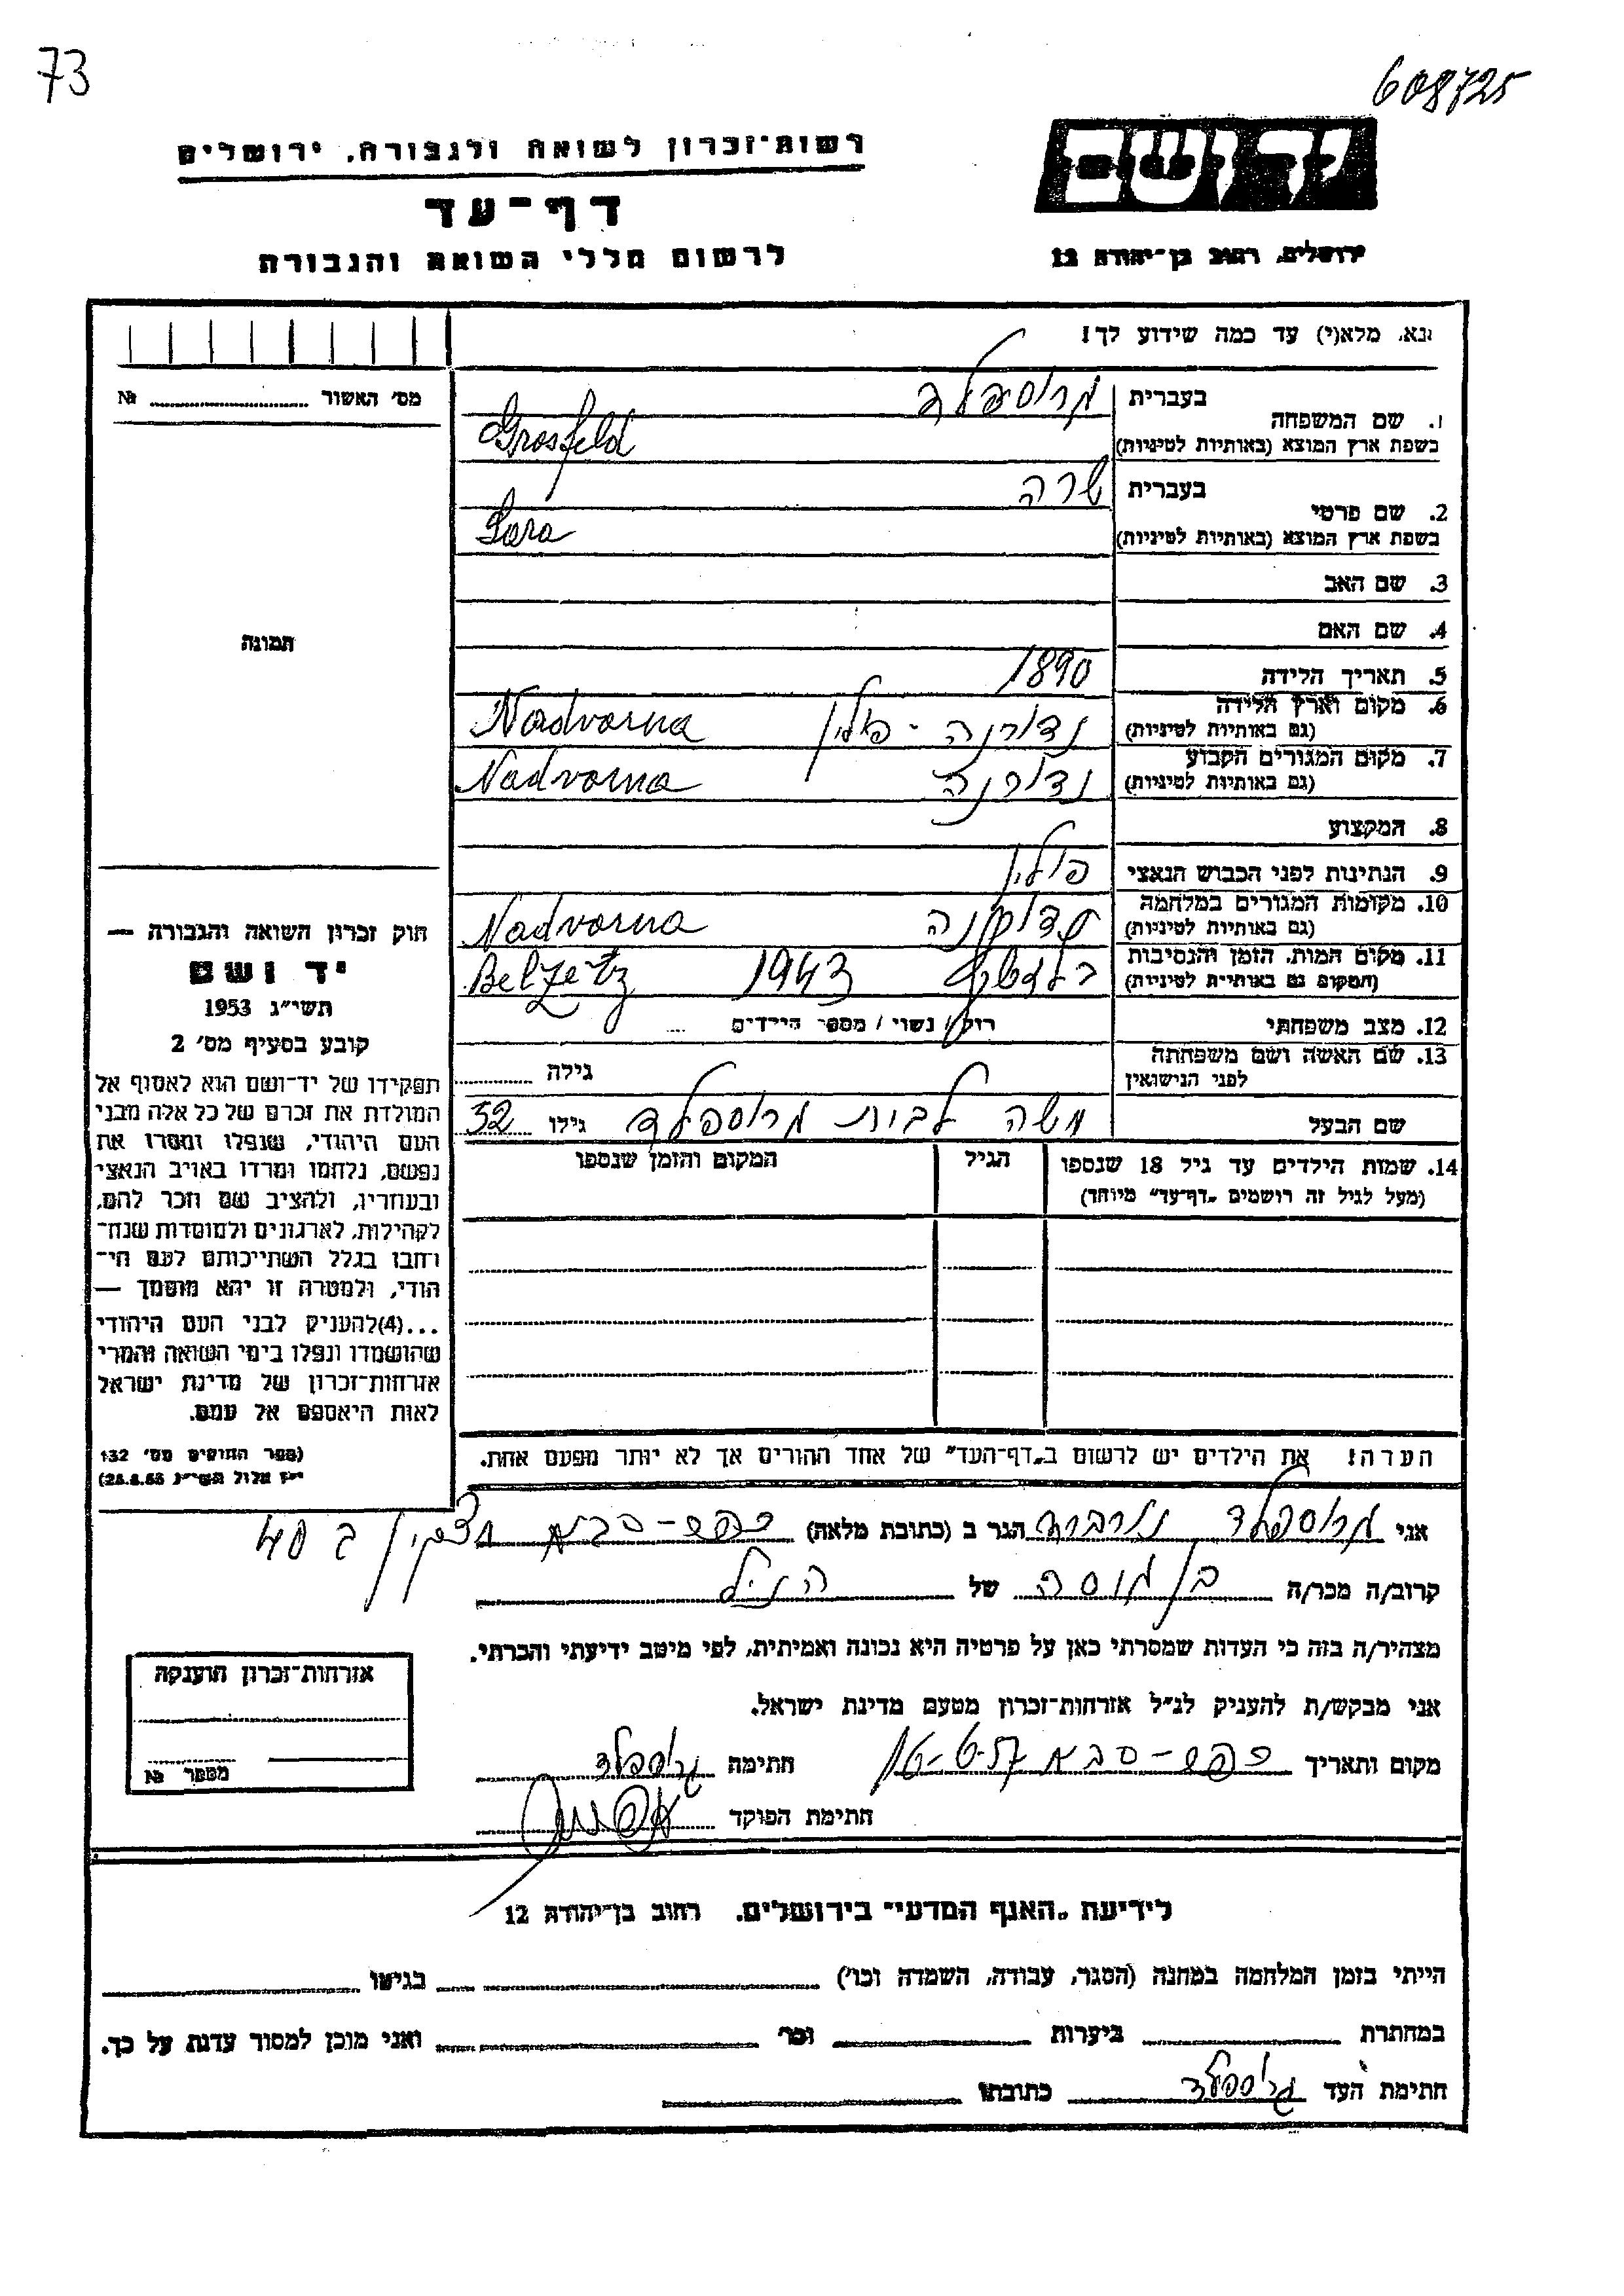 73
608725
רשות־זכרון לשואה ולגבורה, ירושלים
דף־עד
לרשום חללי השואה והגבורה
יד ושם
ירושלים, רחוב בן־יהודה 12
נא, מלא(י) עד כמה שידוע לך!
מס' האשור № 
1. שם המשפחה
בעברית גרוספלד
בשפת ארץ המוצא (באותיות לטיניות) Grosfeld
2. שם פרטי
בעברית שרה
בשפת ארץ המוצא (באותיות לטיניות) Sara
3. שם האב
4. שם האם
תמונה
5. תאריך הלידה 1890
6. מקום וארץ הלידה
(גם באותיות לטיניות) נדורנה - פולין Nadvorna
7. מקום המגורים הקבוע
(גם באותיות לטיניות) נדורנה Nadvorna
8. המקצוע
9. הנתינות לפני הכבוש הנאצי פולין
10. מקומות המגורים במלחמה
(גם באותיות לטיניות) נדורנה Nadvorna
11. מקום המות, הזמן והנסיבות
(המקום גם באותיות לטיניות) 1943 Belzetz
12. מצב משפחתי רווק / נשוי / מספר הילדים ...
13. שם האשה ושם משפחתה
לפני הנישואין גילה
שם הבעל משה לבית גרוספלד גילו 52
14. שמות הילדים עד גיל 18 שנספו
(מעל לגיל זה רושמים „דף־עד" מיוחד)
הגיל
המקום והזמן שנספו
חוק זכרון השואה והגבורה —
יד ושם
תשי"ג 1953
קובע בסעיף מס' 2
תפקידו של יד־ושם הוא לאסוף אל
המולדת את זכרם של כל אלה מבני
העם היהודי, שנפלו ומסרו את
נפשם, נלחמו ומרדו באויב הנאצי
ובעוזריו, ולהציב שם וזכר להם,
לקהילות, לארגונים ולמוסדות שנח־
רבו בגלל השתייכותם לעם הי־
הודי, ולמטרה זו יהא מוסמך —
...(4) להעניק לבני העם היהודי
שהושמדו ונפלו בימי השואה והמרי
אזרחות־זכרון של מדינת ישראל
לאות היאספם אל עמם.
(ספר החוקים מס' 132
י"ז אלול תשי"ג 28.8.53)
הערה! את הילדים יש לרשום ב„דף־העד" של אחד ההורים אך לא יותר מפעם אחת.
אני גרוספלד הגר ב (כתובת מלאה) כפר-סבא
קרוב/ה מכר/ה של הנ"ל
מצהיר/ה בזה כי העדות שמסרתי כאן על פרטיה היא נכונה ואמיתית, לפי מיטב ידיעתי והכרתי.
אני מבקש/ת להעניק לנ"ל אזרחות־זכרון מטעם מדינת ישראל.
מקום ותאריך כפר-סבא חתימה גרוספלד
חתימת הפוקד
אזרחות־זכרון הוענקה
מספר №
לידיעת „האגף המדעי" בירושלים. רחוב בן־יהודה 12
הייתי בזמן המלחמה במחנה (הסגר, עבודה, השמדה וכו') בגיטו
במחתרת ביערות וכו' ואני מוכן למסור עדות על כך.
חתימת העד גרוספלד כתובתו